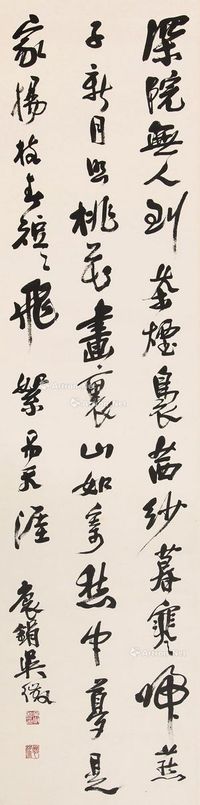 深院無人到茶煙裊茜紗暮寒啼燕
子新月照桃花畫裏山如寄愁中夢是
家楊枝春短短飛絮易天涯
袌鋗吳徵